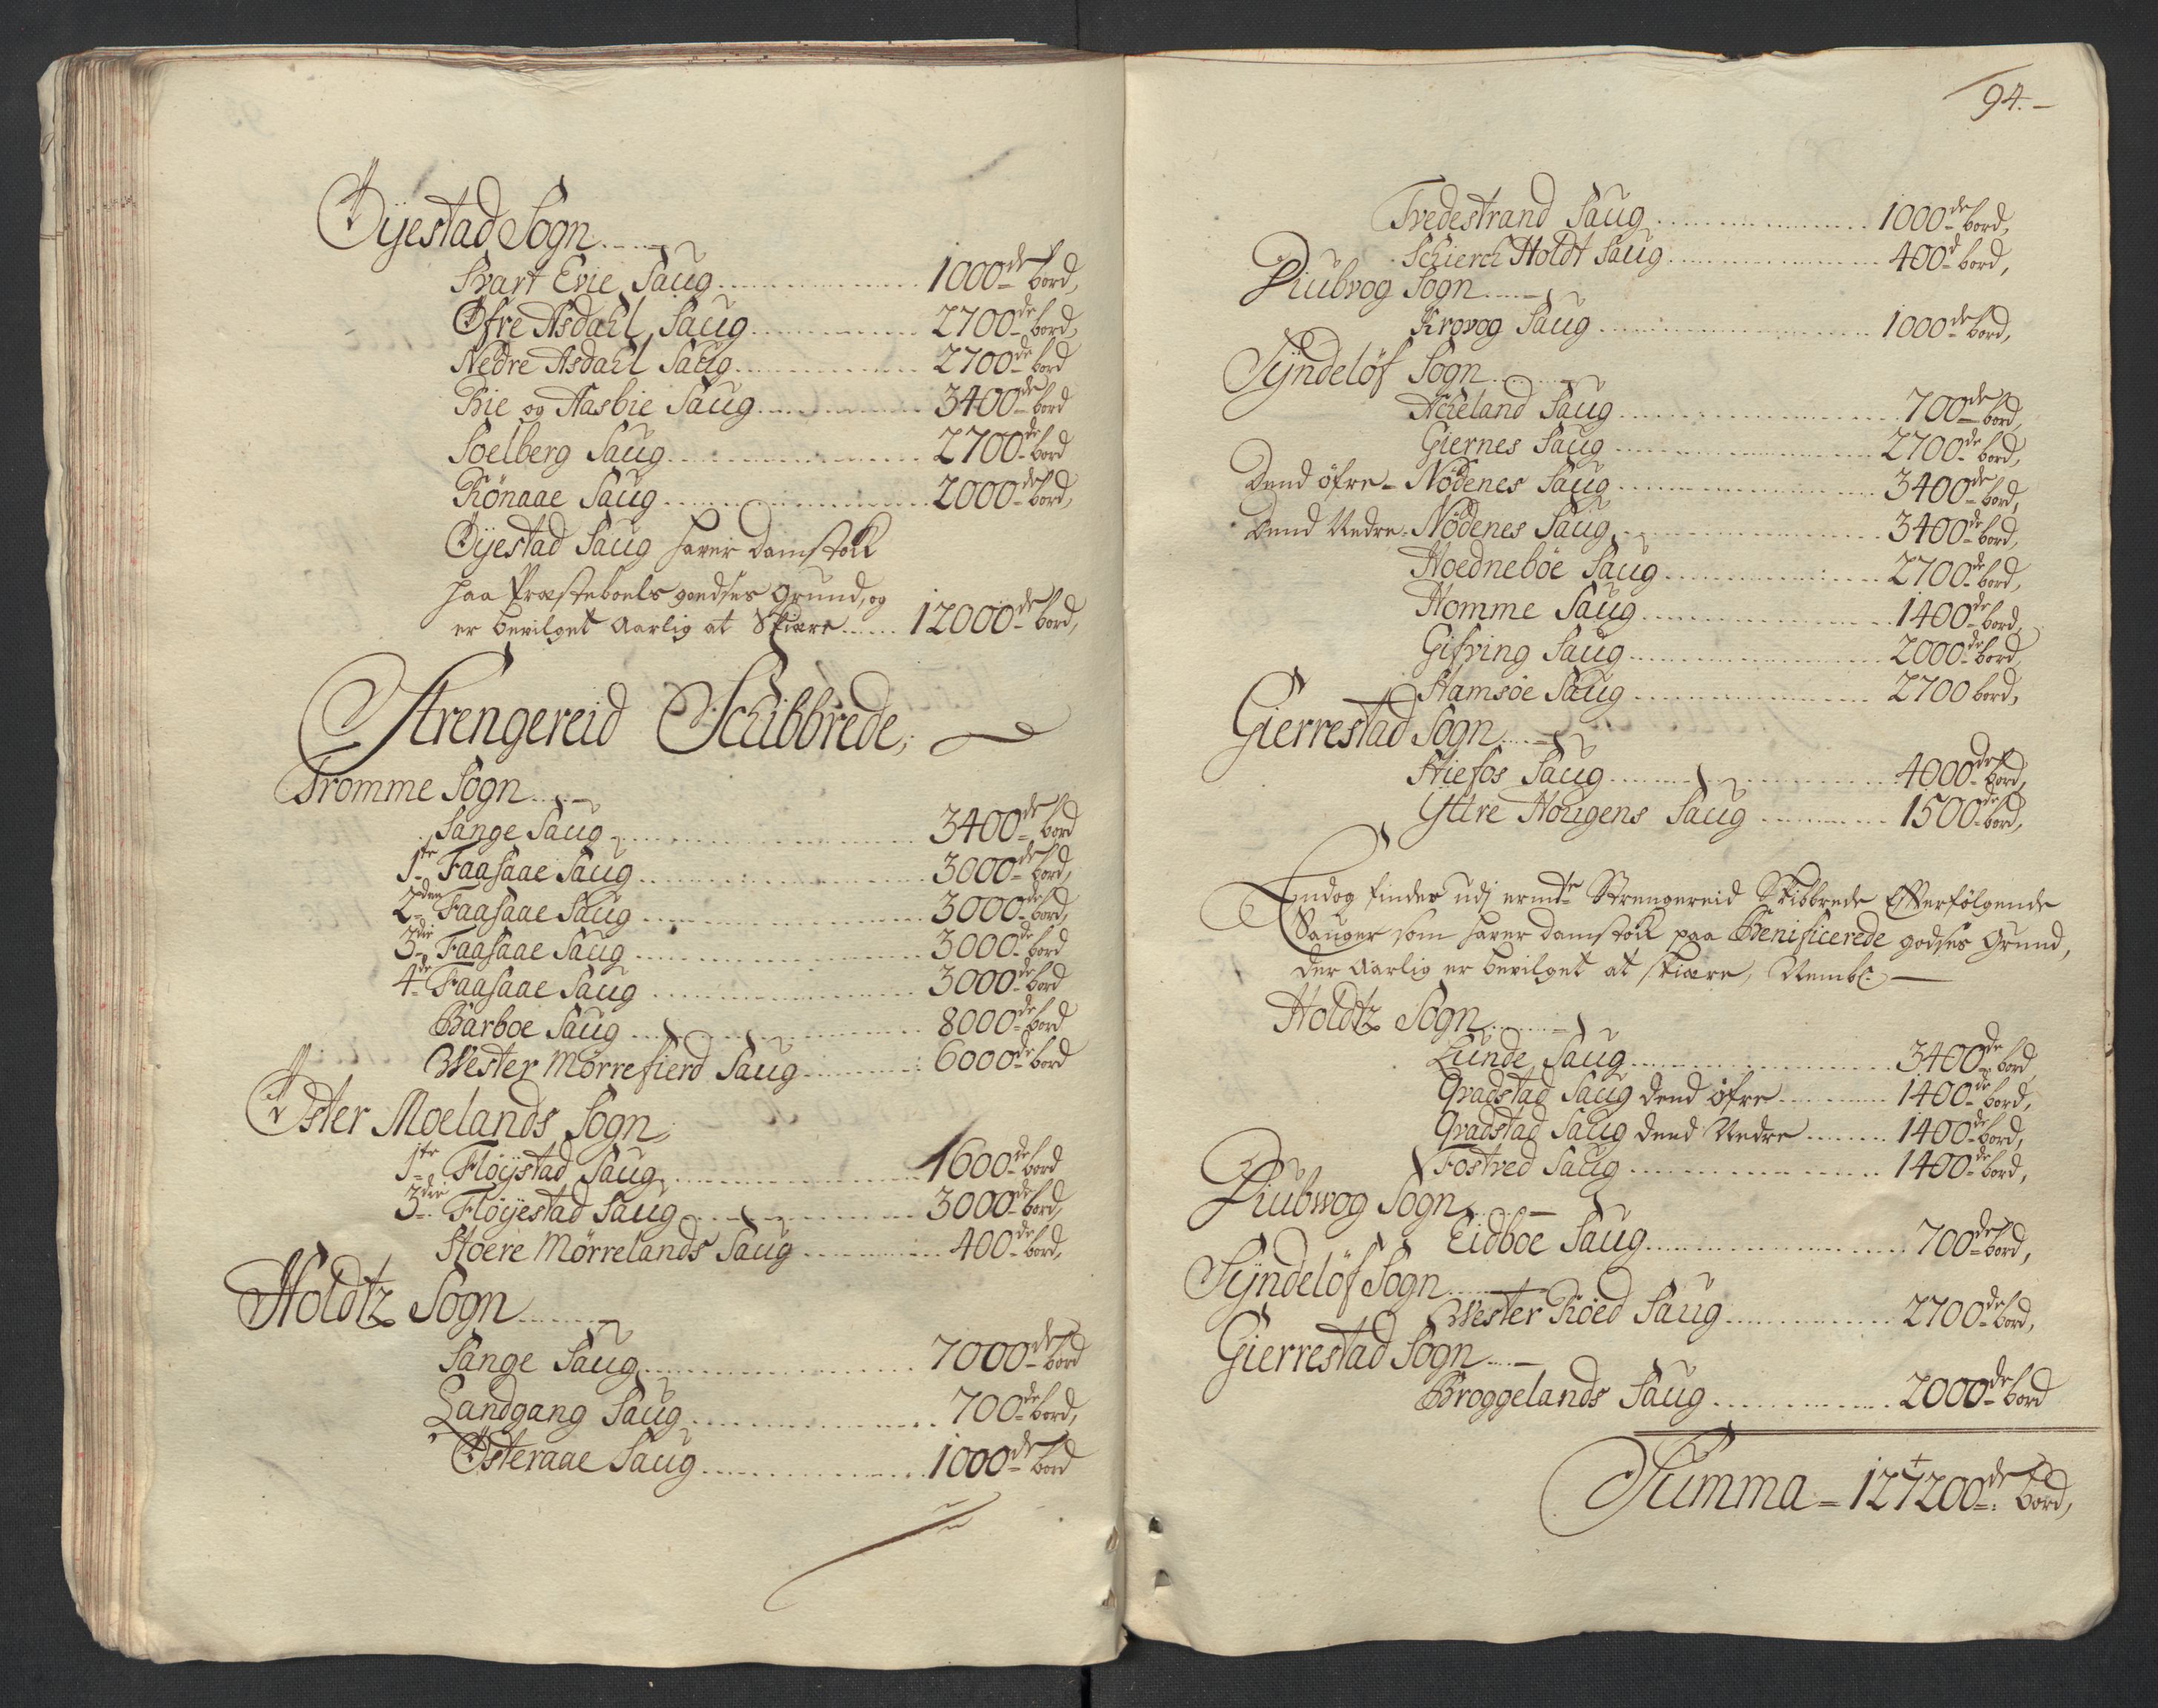 Øÿestad Sogn
Svart Evie Saug 1000de bord,
Øfre Asdahl Saug 2700de bord,
Nedre Asdahl Saug 2700de bord
Rie og Aasbie Saug 3400de bord
Soelberg Saug 2700de bord
Rönaae Saug 2000de bord,
Øÿestad Saug haver damstock
paa Præsteboels godses grund, og
er bevilget Aarlig at Skiære 12000de bord,
Strengereid Schibbrede,
Tromme Sogn
Sange Saug 3400de bord
1te Faasaae Saug 3000de bord,
2den Faasaae Saug 3000de bord,
3die Faasaae Saug 3000de bord
4de Faasaae Saug 3000de bord
Barboe Saug 8000de bord
Wester Mörrefierd Saug 6000de bord
Øster Moelands Sogn,
1te Flöÿstad Saug 1600de bord
3die Flöÿestad Saug 3000de bord,
Stoere Mörrelands Saug 400de bord,
Holdtz Sogn
Sange Saug 7000de bord
Landgang Saug 700de bord,
Østeraae Saug 1000de bord
94.
Tvedestrand Saug 1000de bord,
Schierch Holdt Saug 400d bord,
Diubvog Sogn
Krovog Saug 1000de bord,
Sÿndelöf Sogn
Acheland Saug 700de bord,
Giernes Saug 2700de bord,
Dend öfre Nödenes Saug 3400de bord,
Dend Nedre Nödenes Saug 3400de bord,
Hoedneböe Saug 2700de bord,
Homme Saug 1400de bord,
Gifring Saug 2000de bord,
Hamsöe Saug 2700 bord,
Gierrestad Sogn
Stiefos Saug 4000de bord,
Yttre Hougens Saug 1500de bord,
Endog findes udj ermte Strengereid Skibbrede Efterfölgende
Sauger som haver damstock paa Benificerede godses Grund,
der Aarlig er bevilget at skiære, Nembl:
Holdtz Sogn
Lunde Saug 3400de bord
Qvadstad Saug dend öfre 1400de bord,
Qvadstad Saug dend Nedre 1400de bord,
Fostved Saug 1400de bord,
Diubwog Sogn
Eidboe Saug 700de bord,
Sÿndelöf Sogn
Wester Röed Saug 2700de bord,
Gierrestad Sogn
Broggelands Saug 2000de bord
Summa 127200de bord,